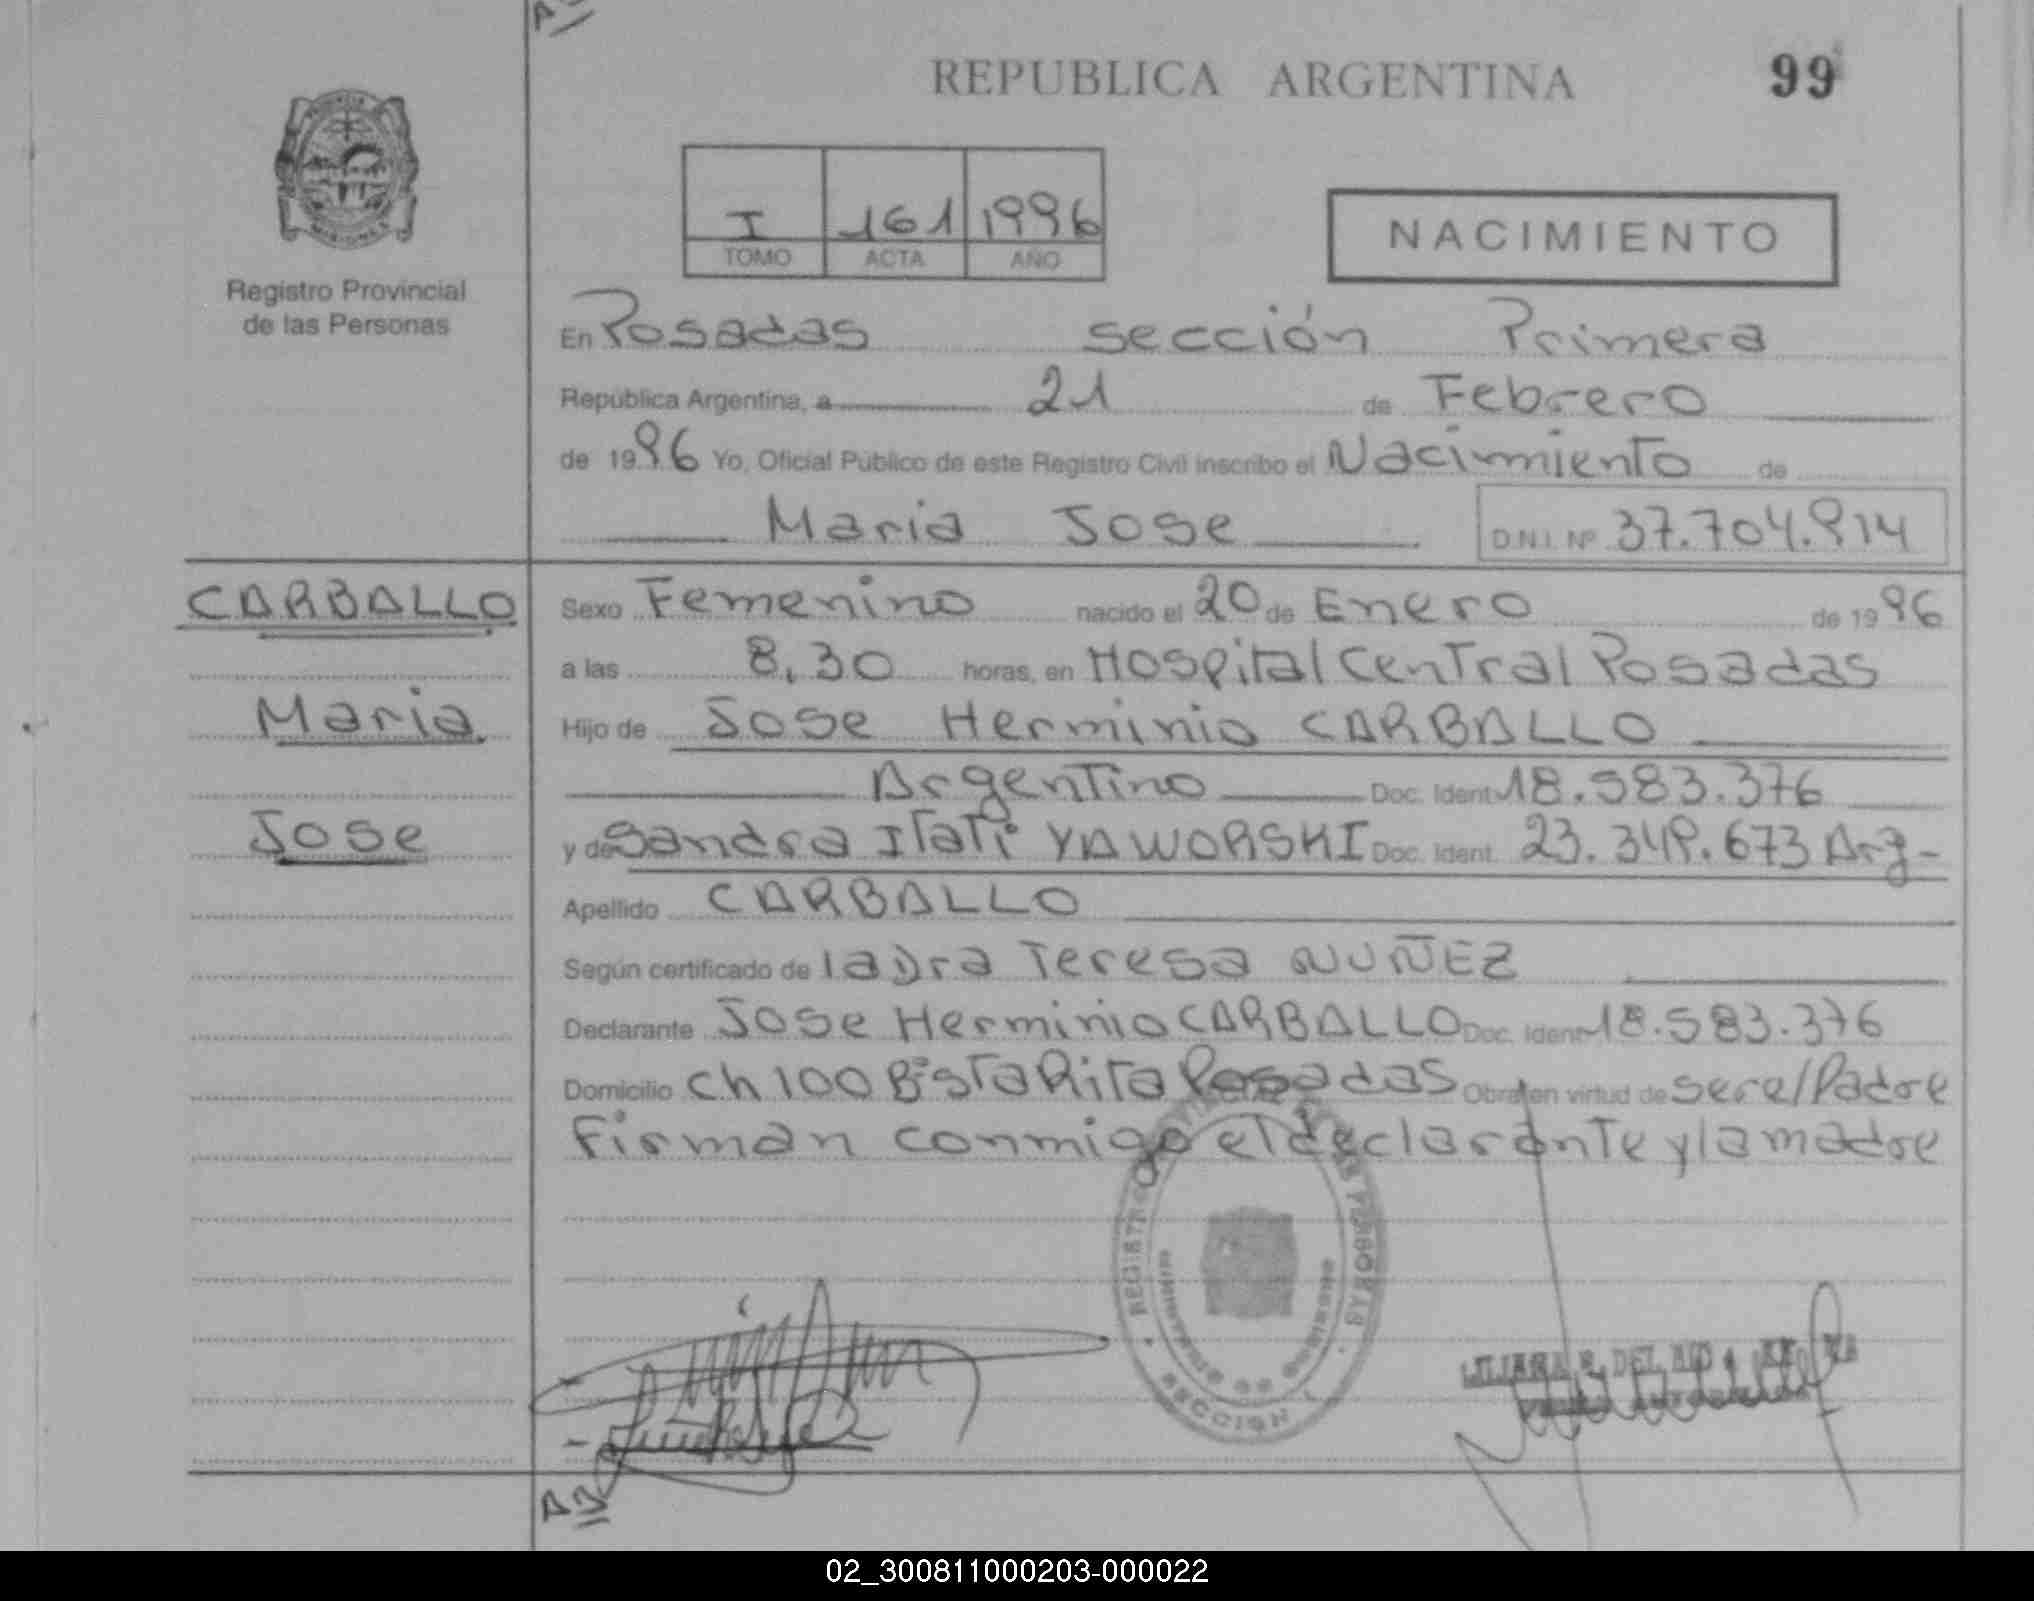 REPUBLICA ARGENTINA 99
I 161 1996
TOMO ACTA AÑO
NACIMIENTO
Registro Provincial
de las Personas
En Posadas sección Primera
República Argentina, a 21 de Febrero
de 1996 Yo, Oficial Público de este Registro Civil inscribo el Nacimiento de
Maria Jose D.N.I. Nº 37.704.914
CARBALLO
Maria
Jose
Sexo Femenino nacido el 20 de Enero de 1996
a las 8,30 horas, en Hospital Central Posadas
Hijo de Jose Herminio CARBALLO
Argentino Doc. Ident. 18.583.376
y de Sandra Itati YAWORSKI Doc. Ident. 23.349.673 Arg-
Apellido CARBALLO
Según certificado de la Dra Teresa NUÑEZ
Declarante Jose Herminio CARBALLO Doc. Ident. 18.583.376
Domicilio Ch 100 Bº Sta Rita Posadas Obra en virtud de ser el Padre
Firman conmigo el declarante y la madre
REGISTRO PROVINCIAL DE LAS PERSONAS
MINISTERIO DE GOBIERNO
SECCION 1
LILIANA DEL
02_300811000203-000022